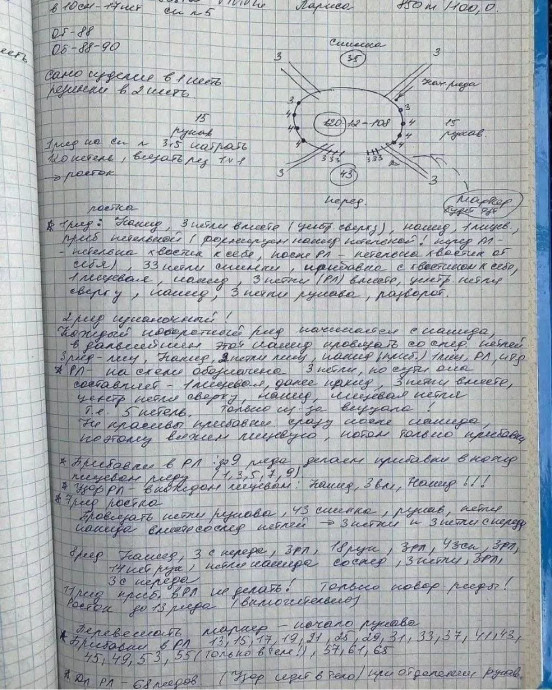 в 10см - 17пет
сп n 5
Лариса
350м/100,0.
ОГ-88
ОБ-88-90
само изделие в 1 нить
резинки в 2 нить
15
рукав
1 ряд на сп n 3,5 набрать
120 петель, вязать рез 1х1
→ росток
Спинка
35
3
3
Нач. ряда
3
3
4
4
4
4
4
4
120-12=108
15
рукав
333
333
3
45
3
перед.
маркер
ростка
* 1 ряд: Накид, 3 петли вместе (центр сверху), накид, 1 лицев.,
приб петельной (формируем накид петелькой! перед РЛ -
петелька хвостик к себе, после РЛ - петелька хвостик от
себя), 33 петли спинки, прибавка с хвостиком к себе,
1 лицевая, накид, 3 петли (РЛ) вместе, центр петля
сверху, накид, 3 петли рукава, разворот.
2 ряд изнаночный!
Каждый поворотный ряд начинается с накида,
в дальнейшем этот накид провязать со след петлей
3 ряд - лиц, Накид, 2 петли лиц, накид (приб.) 1 лиц, РЛ, и тд
* РЛ - на схеме обозначена 3 петли, но сути она
составляет - 1 лицевая, далее накид, 3 петли вместе,
центр петля сверху, накид, лицевая петля
т.е. 5 петель. Только из за визуала!
Не красивы прибавки сразу после накида,
поэтому вяжем лицевую, потом только прибавку
* Прибавки в РЛ: до 9 ряда делаем прибавки в кажд
лицевом ряду 1, 3, 5, 7, 9)
* Узор РЛ - в каждом лицевом: Накид, 3 вм, Накид!!!
* 7 ряд ростка
Провязать петли рукава, 43 спинка, рукав, петля
накида вместе со след петлей → 3 петли и 3 петли спереду
9 ряд Накид, 3 с переда, 3рл, 18 рук, 3рл, 43 сп, 3рл,
14 пет рук, петля накида со след, 3 петли, 3рл,
3 с переда
11 ряд приб. в РЛ не делать! Только повор. ряды!
Росток до 13 ряда (включительно)
Перевешать маркер - начало рукава
* Прибавки в РЛ 13, 15, 17, 19, 21, 25, 29, 31, 33, 37, 41, 43,
45, 49, 53, 55 (только в теле!), 57, 61, 65
* Дл РЛ - 68 рядов (Узор идет в тело) при отделении рукав.